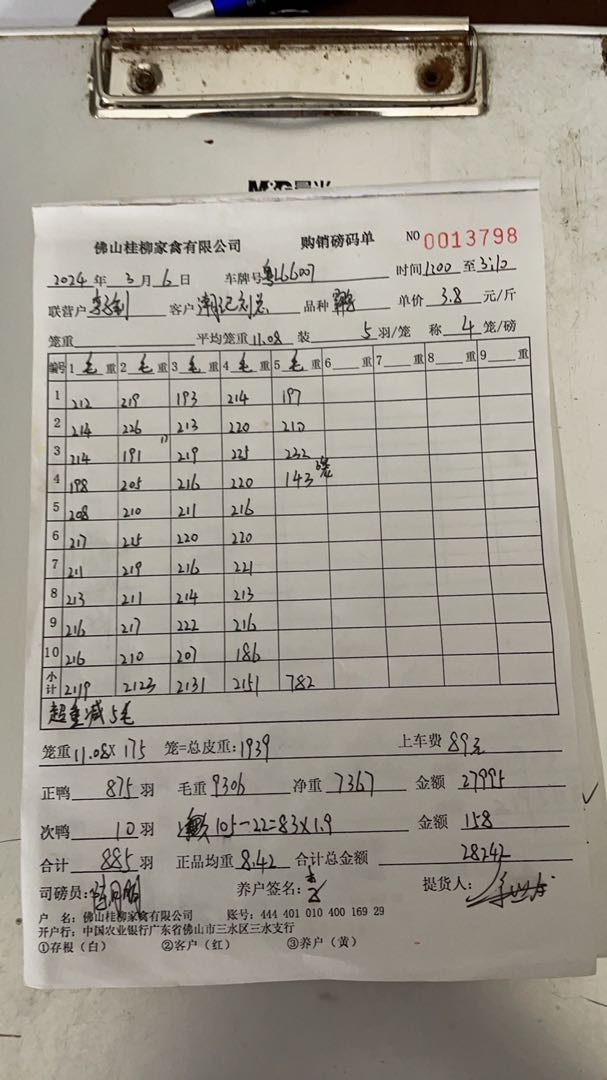 佛山桂柳家禽有限公司 购销磅码单 NO 0013798
2024 年 3 月 6 日 车牌号 时间 1200 至 3:10
联营户 客户 潮记刘总 品种 单价 3.8 元/斤
笼重 平均笼重 11.08 装 5 羽/笼 称 4 笼/磅
编号 1 毛 重 2 毛 重 3 毛 重 4 毛 重 5 毛 重 6 重 7 重 8 重 9 重
1 212 219 193 214 197
2 214 226 213 220 210
3 214 191 17 219 225 232
4 198 205 216 220 143
5 208 210 211 216
6 217 215 220 220
7 211 219 216 221
8 213 211 214 213
9 216 217 222 216
10 216 210 207 186
小计 2119 2123 2131 2151 782
超重减5毛
笼重 11.08 X 175 笼=总皮重: 1939 上车费 89元
正鸭 875 羽 毛重 9306 净重 7367 金额 27995
次鸭 10 羽 105-22=83X1.9 金额 158
合计 885 羽 正品均重 8.42 合计总金额 28242
司磅员: 养户签名: 提货人:
户 名: 佛山桂柳家禽有限公司 账号: 444 401 010 400 169 29
开户行: 中国农业银行广东省佛山市三水区三水支行
①存根（白） ②客户（红） ③养户（黄）